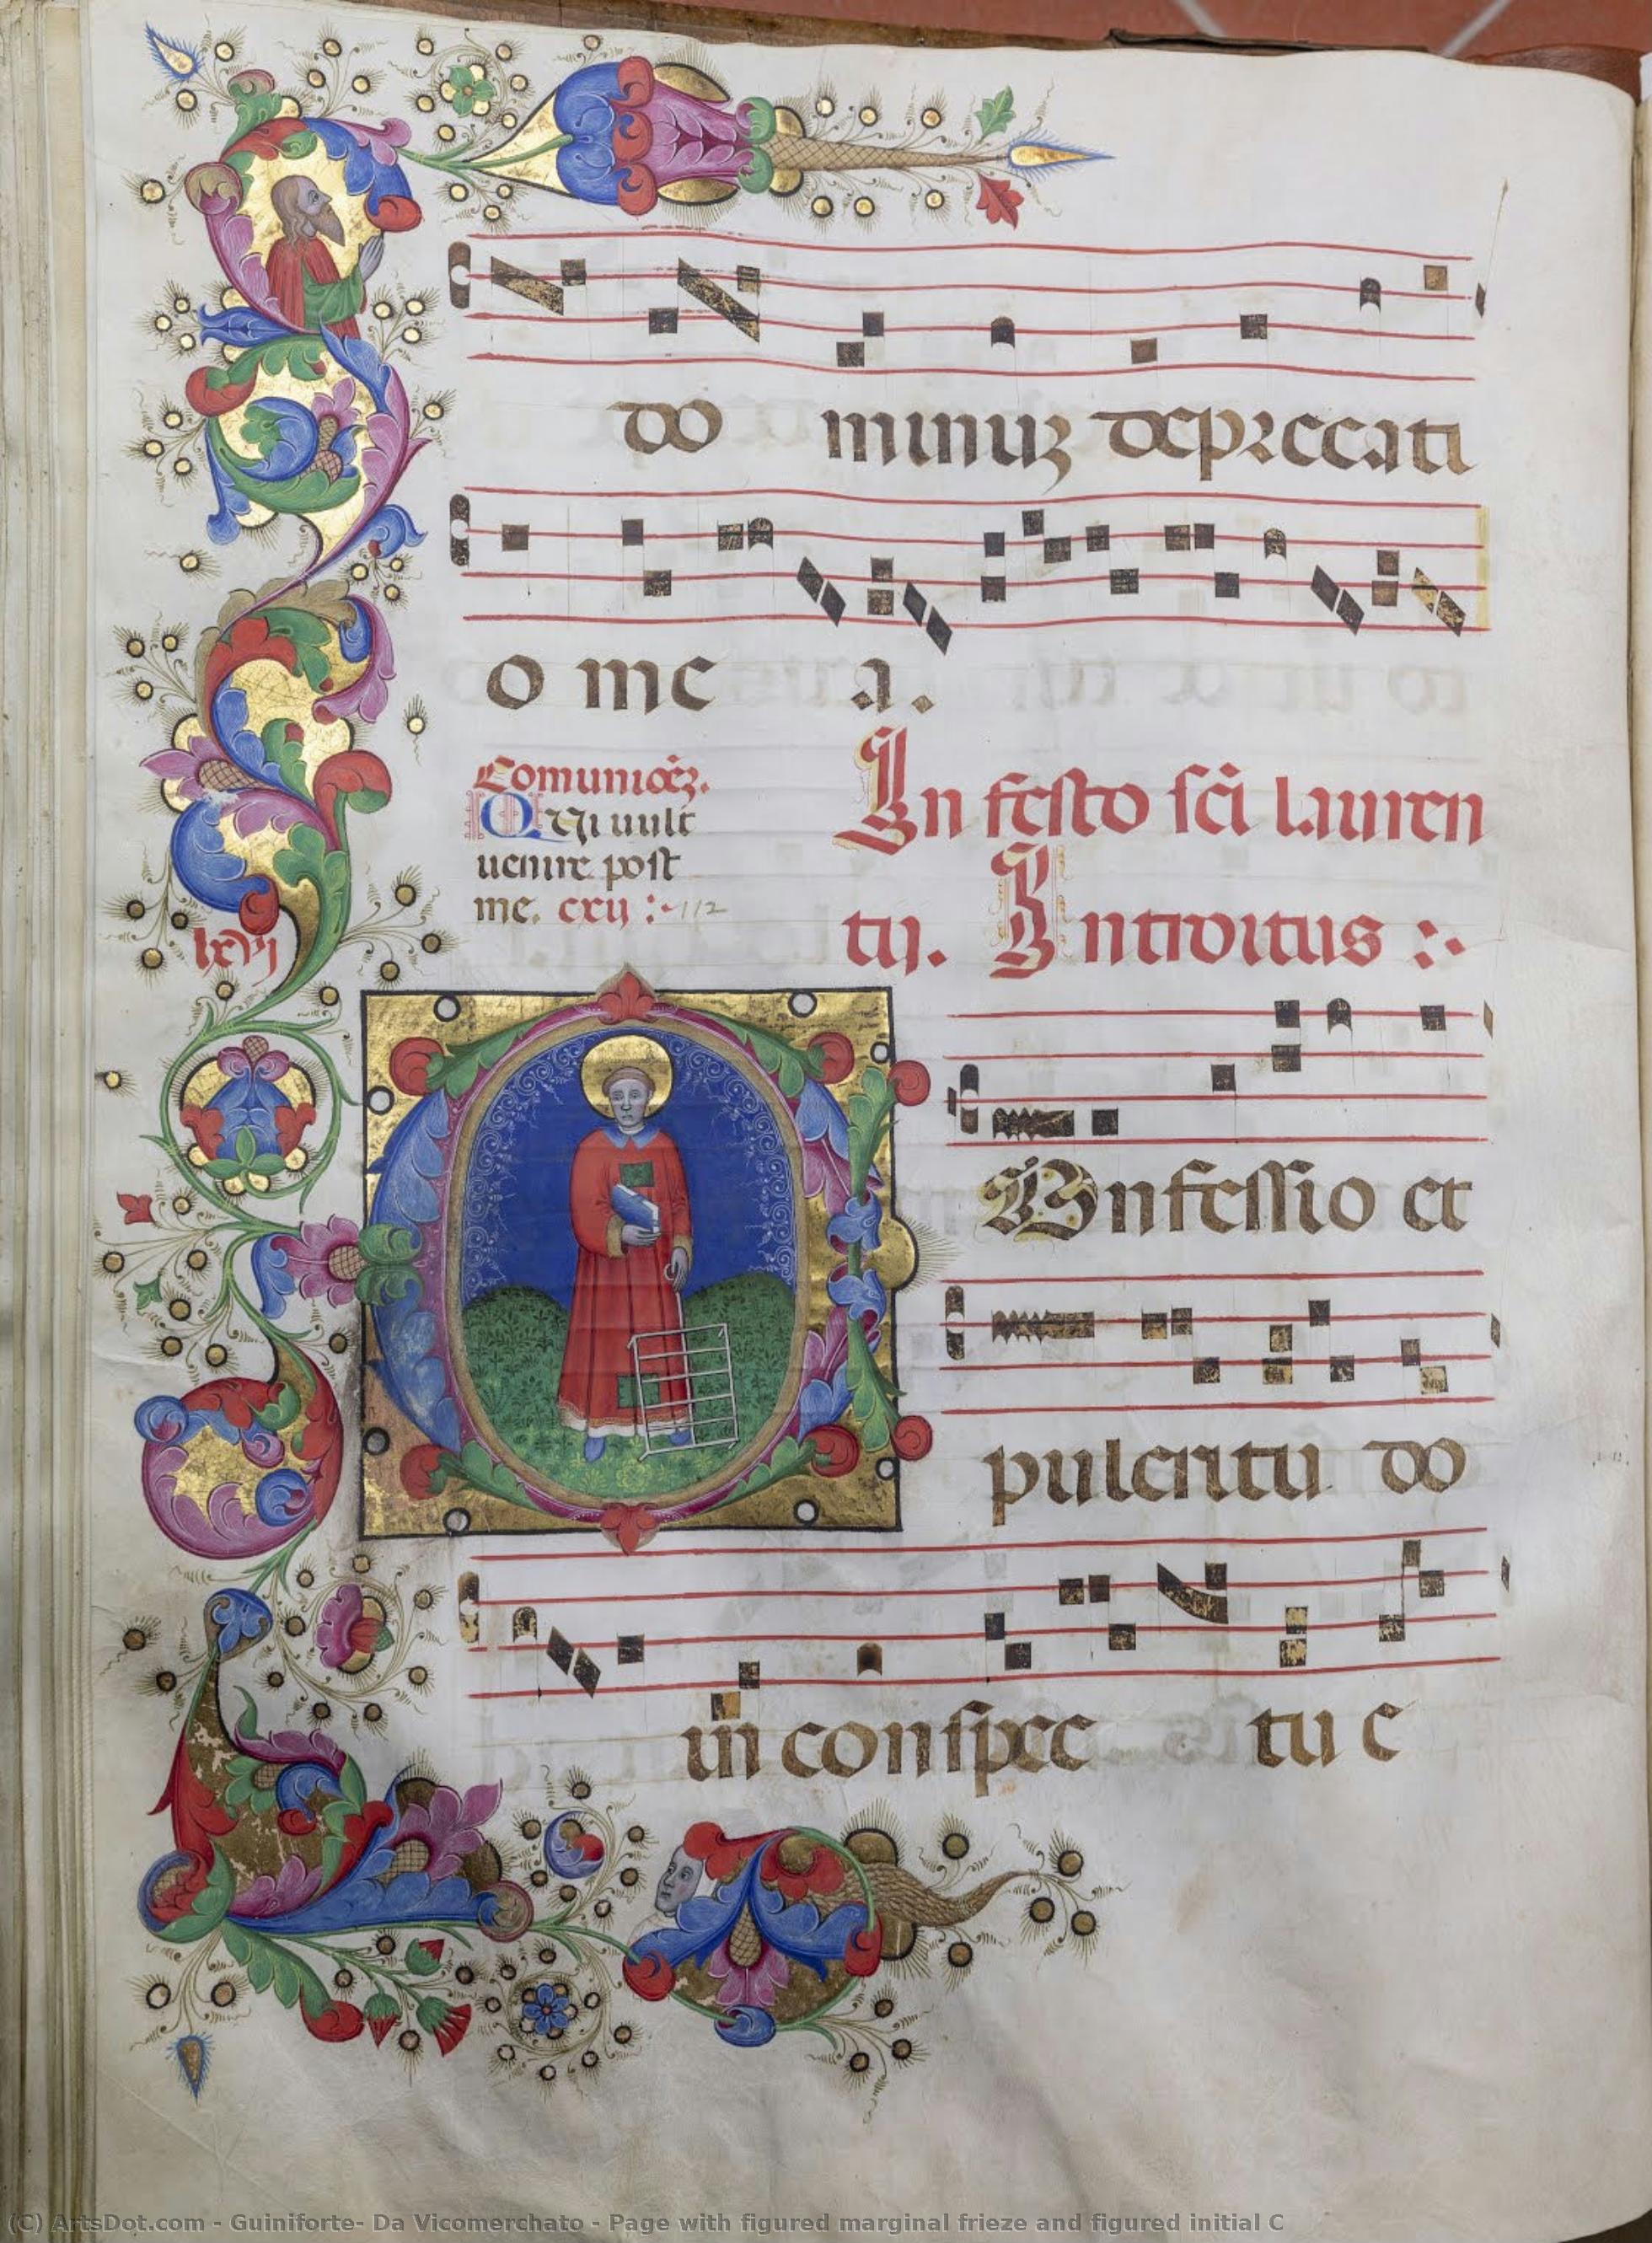 do minuʒ depreccati
o me a.
Comunioēʒ.
Qui uult
uenire post
me. cxij :~ 112
In festo sci̅ lauren
tij. Introitus :·
lxvj
Onfessio et
pulcritu do
in conspec tu e
(C) ArtsDot.com - Guiniforte- Da Vicomerchato - Page with figured marginal frieze and figured initial C